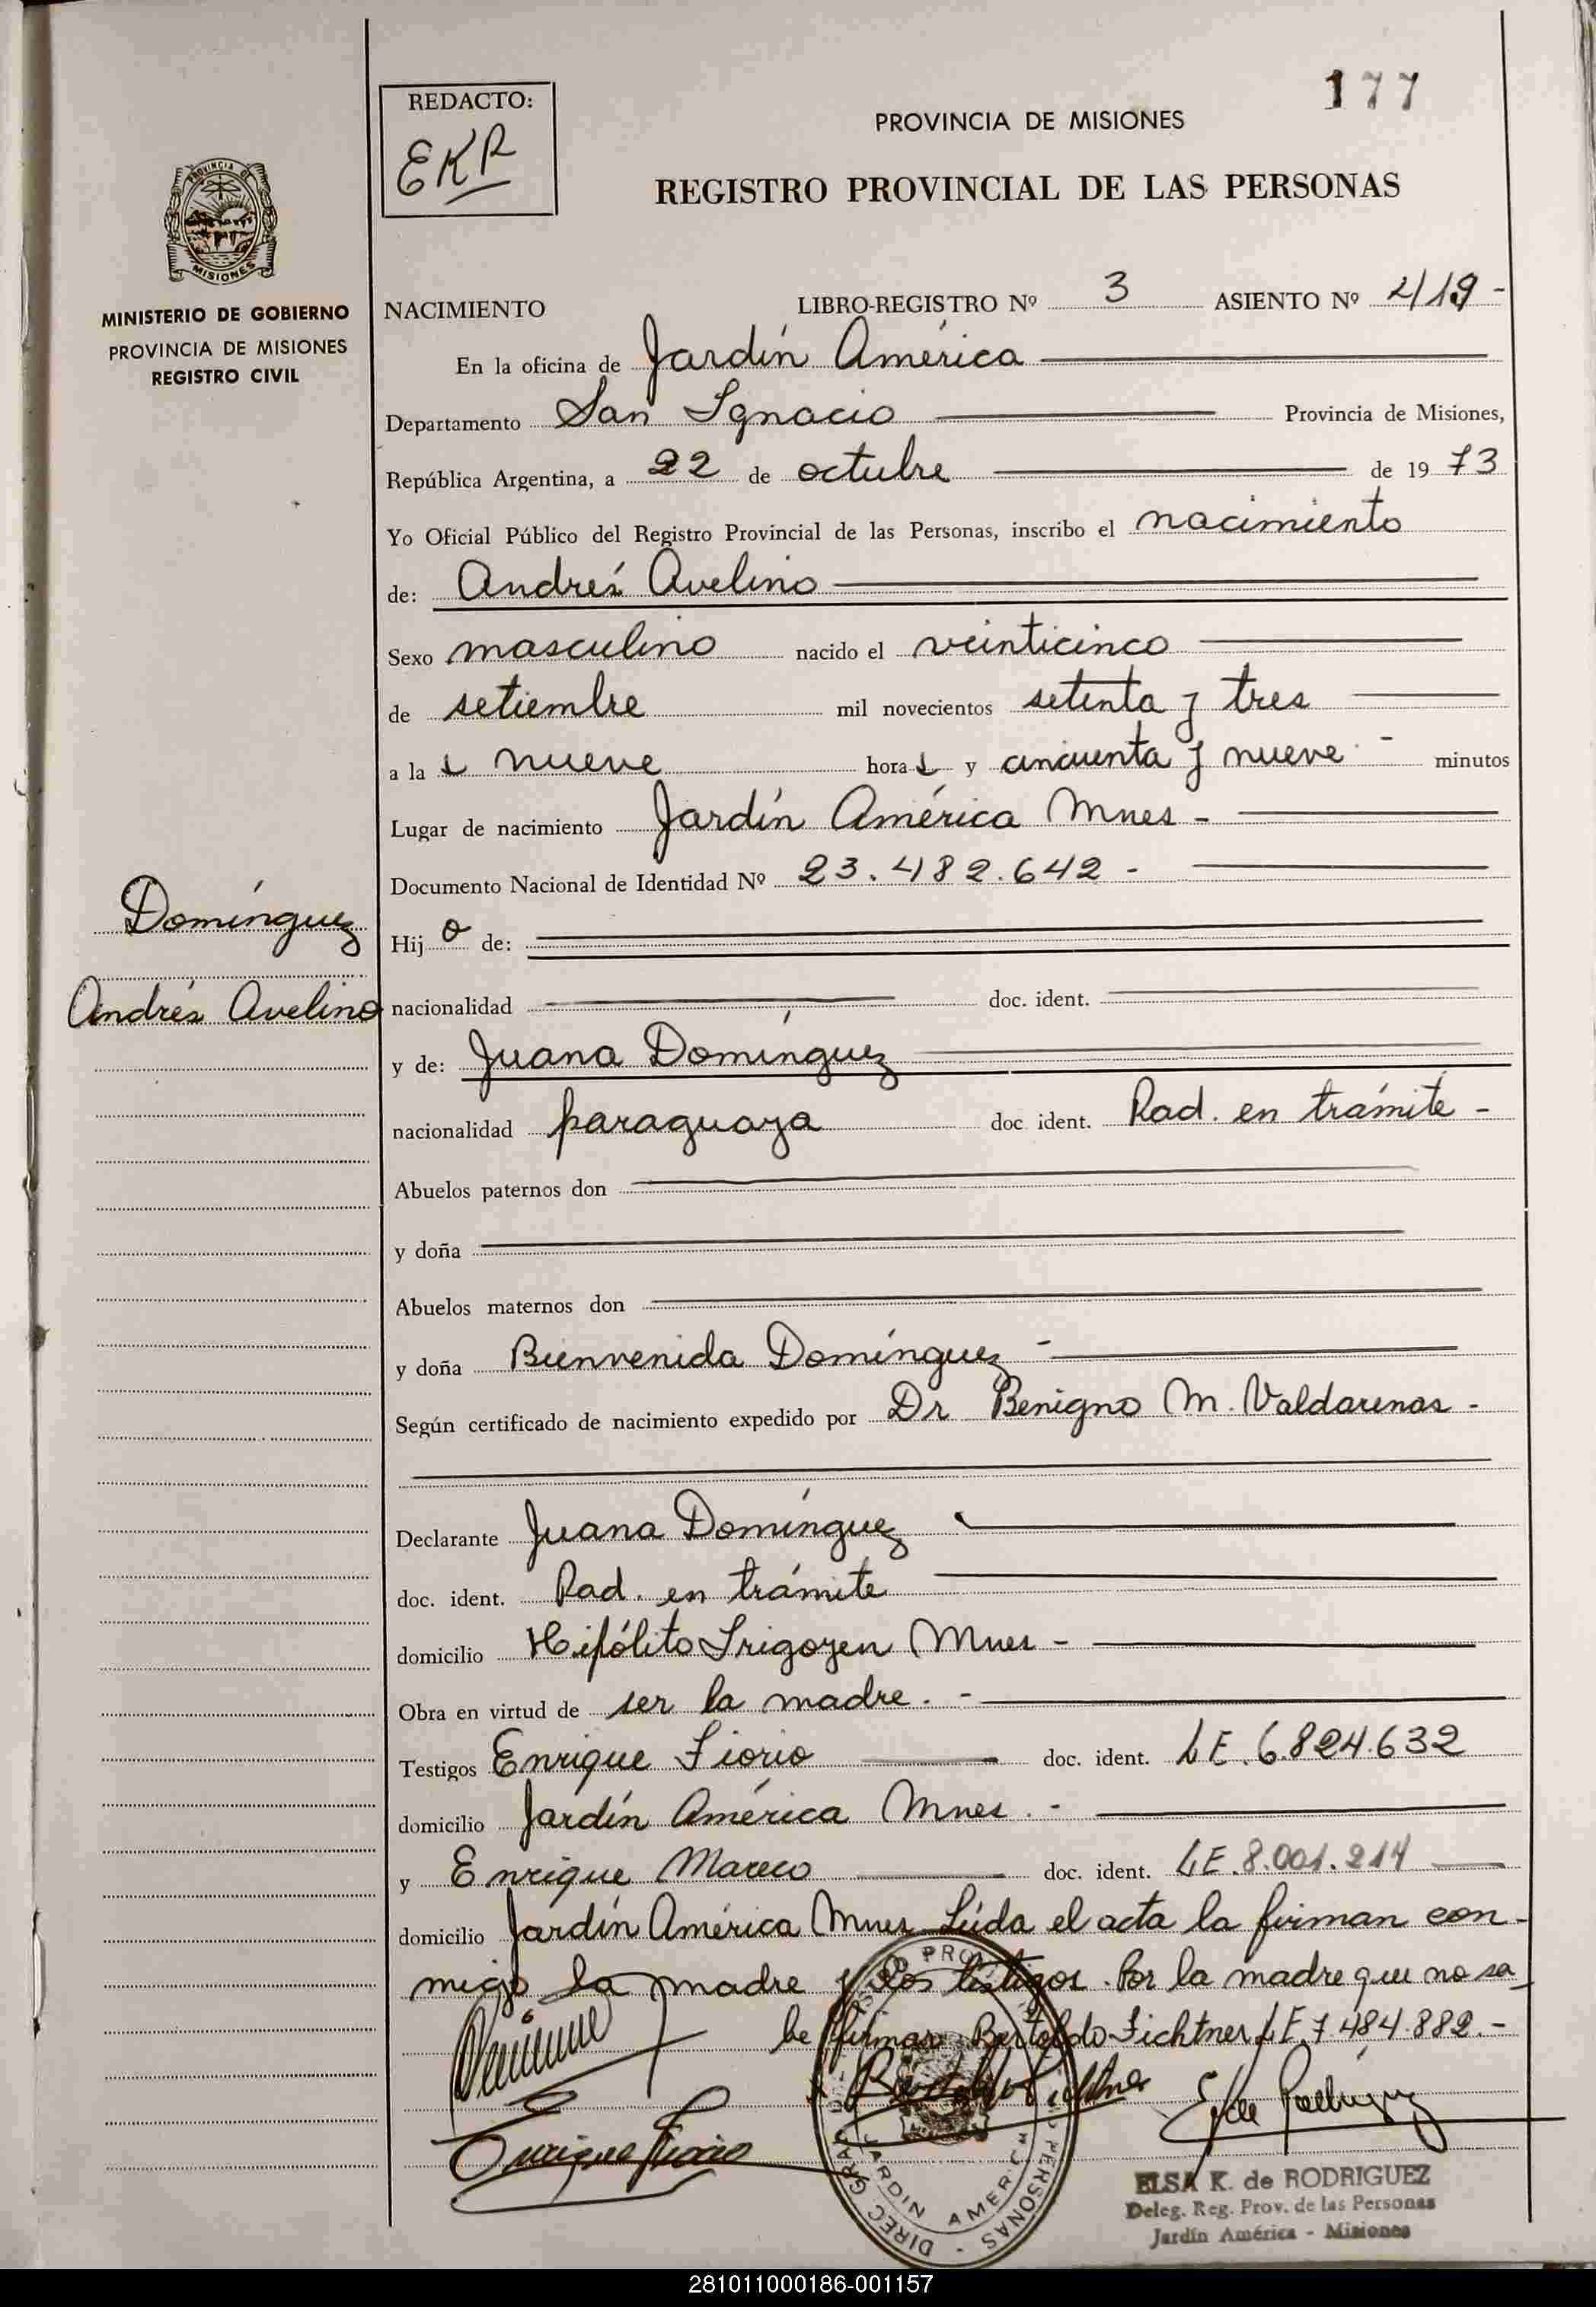 177
REDACTO:
EKR
PROVINCIA DE MISIONES
REGISTRO PROVINCIAL DE LAS PERSONAS
PROVINCIA DE
MISIONES
MINISTERIO DE GOBIERNO
PROVINCIA DE MISIONES
REGISTRO CIVIL
NACIMIENTO LIBRO-REGISTRO Nº 3 ASIENTO Nº 419 -
En la oficina de Jardín América
Departamento San Ignacio Provincia de Misiones,
República Argentina, a 22 de octubre de 1973
Yo Oficial Público del Registro Provincial de las Personas, inscribo el nacimiento
de: Andrés Avelino
Sexo masculino nacido el veinticinco
de setiembre mil novecientos setenta y tres
a las nueve horas y cincuenta y nueve - minutos
Lugar de nacimiento Jardín América Mnes -
Documento Nacional de Identidad Nº 23.482.642 -
Domínguez
Andrés Avelino
Hijo de:
nacionalidad doc. ident.
y de: Juana Domínguez
nacionalidad paraguaya doc ident. Rad. en trámite -
Abuelos paternos don
y doña
Abuelos maternos don
y doña Bienvenida Domínguez -
Según certificado de nacimiento expedido por Dr Benigno M. Valdarenas -
Declarante Juana Domínguez
doc. ident. Rad. en trámite
domicilio Hipólito Irigoyen Mnes -
Obra en virtud de ser la madre. -
Testigos Enrique Fiorio doc. ident. LE.6.824.632
domicilio Jardín América Mnes. -
y Enrique Mareco doc. ident. LE.8.001.214
domicilio Jardín América Mnes Leída el acta la firman con-
migo la madre y los testigos. Por la madre que no sa
be firmar Bertoldo Fichtner LE.7.484.882.-
Enrique Fiorio
DIREC GRAL
PERSONAS
JARDIN AMERICA
ELSA K. de RODRIGUEZ
Deleg. Reg. Prov. de las Personas
Jardín América - Misiones
281011000186-001157